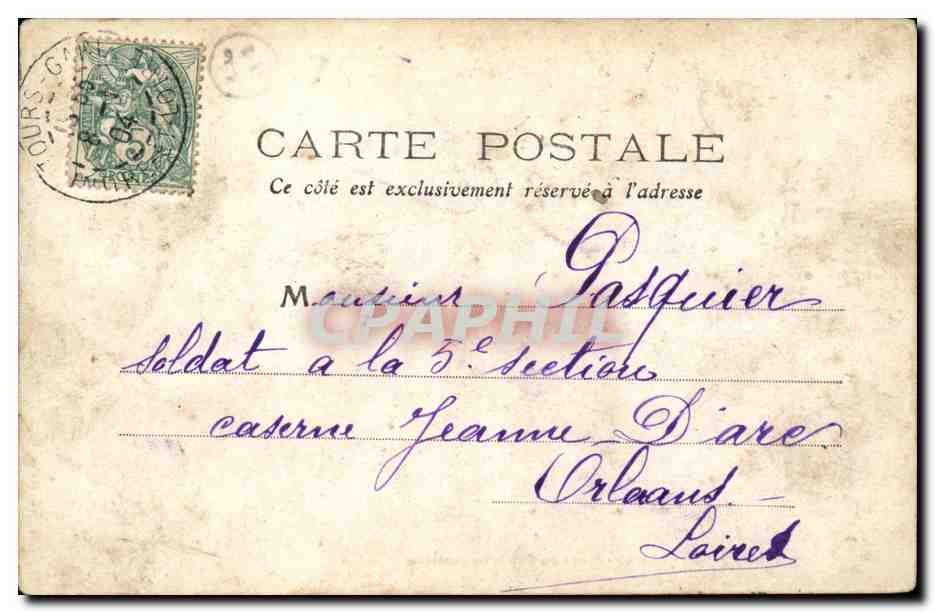 TOURS-GARE
04
CARTE POSTALE
Ce côté est exclusivement réservé à l'adresse
Monsieur Pasquier
CPAPHIL
soldat a la 5e section
caserne Jeanne D'arc
Orleans
Loiret